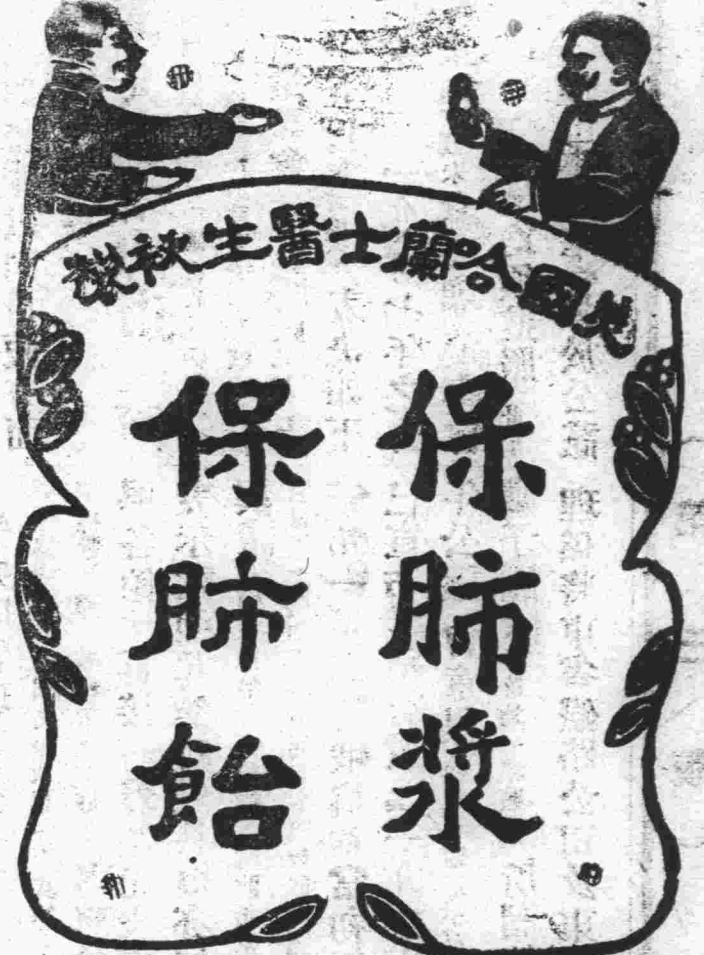 國哈蘭士醫生秘製
保肺漿
保肺飴